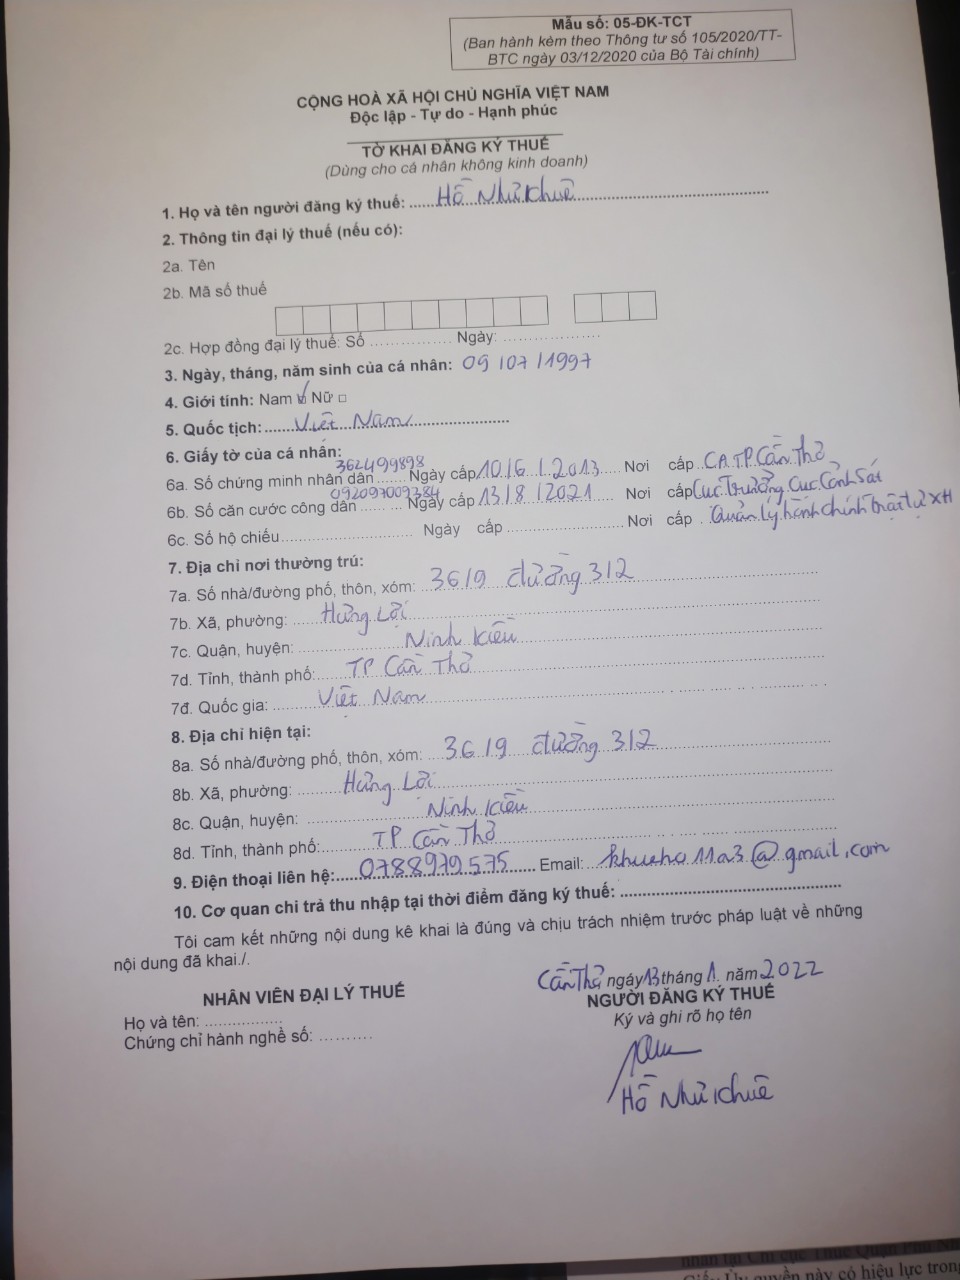 Mẫu số: 05-ĐK-TCT
(Ban hành kèm theo Thông tư số 105/2020/TT-
BTC ngày 03/12/2020 của Bộ Tài chính)
CỘNG HOÀ XÃ HỘI CHỦ NGHĨA VIỆT NAM
Độc lập - Tự do - Hạnh phúc
TỜ KHAI ĐĂNG KÝ THUẾ
(Dùng cho cá nhân không kinh doanh)
1. Họ và tên người đăng ký thuế: Hồ Như Khuê
2. Thông tin đại lý thuế (nếu có):
2a. Tên
2b. Mã số thuế
2c. Hợp đồng đại lý thuế: Số .................. Ngày: ......................
3. Ngày, tháng, năm sinh của cá nhân: 09/07/1997
4. Giới tính: Nam ☑ Nữ □
5. Quốc tịch: Việt Nam
6. Giấy tờ của cá nhân:
6a. Số chứng minh nhân dân 362499898 Ngày cấp 10/6/2013 Nơi cấp CA TP Cần Thơ
6b. Số căn cước công dân 092097009384 Ngày cấp 13/8/2021 Nơi cấp Cục Trưởng Cục Cảnh Sát
6c. Số hộ chiếu............................ Ngày cấp ......................... Nơi cấp Quản lý hành chính trật tự XH
7. Địa chỉ nơi thường trú:
7a. Số nhà/đường phố, thôn, xóm: 36/9 đường 3/2
7b. Xã, phường: Hưng Lợi
7c. Quận, huyện: Ninh Kiều
7d. Tỉnh, thành phố: TP Cần Thơ
7đ. Quốc gia: Việt Nam
8. Địa chỉ hiện tại:
8a. Số nhà/đường phố, thôn, xóm: 36/9 đường 3/2
8b. Xã, phường: Hưng Lợi
8c. Quận, huyện: Ninh Kiều
8d. Tỉnh, thành phố: TP Cần Thơ
9. Điện thoại liên hệ: 0788979575 Email: khueho11a3@gmail.com
10. Cơ quan chi trả thu nhập tại thời điểm đăng ký thuế: ......................................
Tôi cam kết những nội dung kê khai là đúng và chịu trách nhiệm trước pháp luật về những
nội dung đã khai./.
Cần Thơ ngày 13 tháng 1 năm 2022
NHÂN VIÊN ĐẠI LÝ THUẾ
NGƯỜI ĐĂNG KÝ THUẾ
Họ và tên: .................
Ký và ghi rõ họ tên
Chứng chỉ hành nghề số: ..........
Hồ Như Khuê
Chi cục Thuế Quận
quyền này có hiệu lực trong